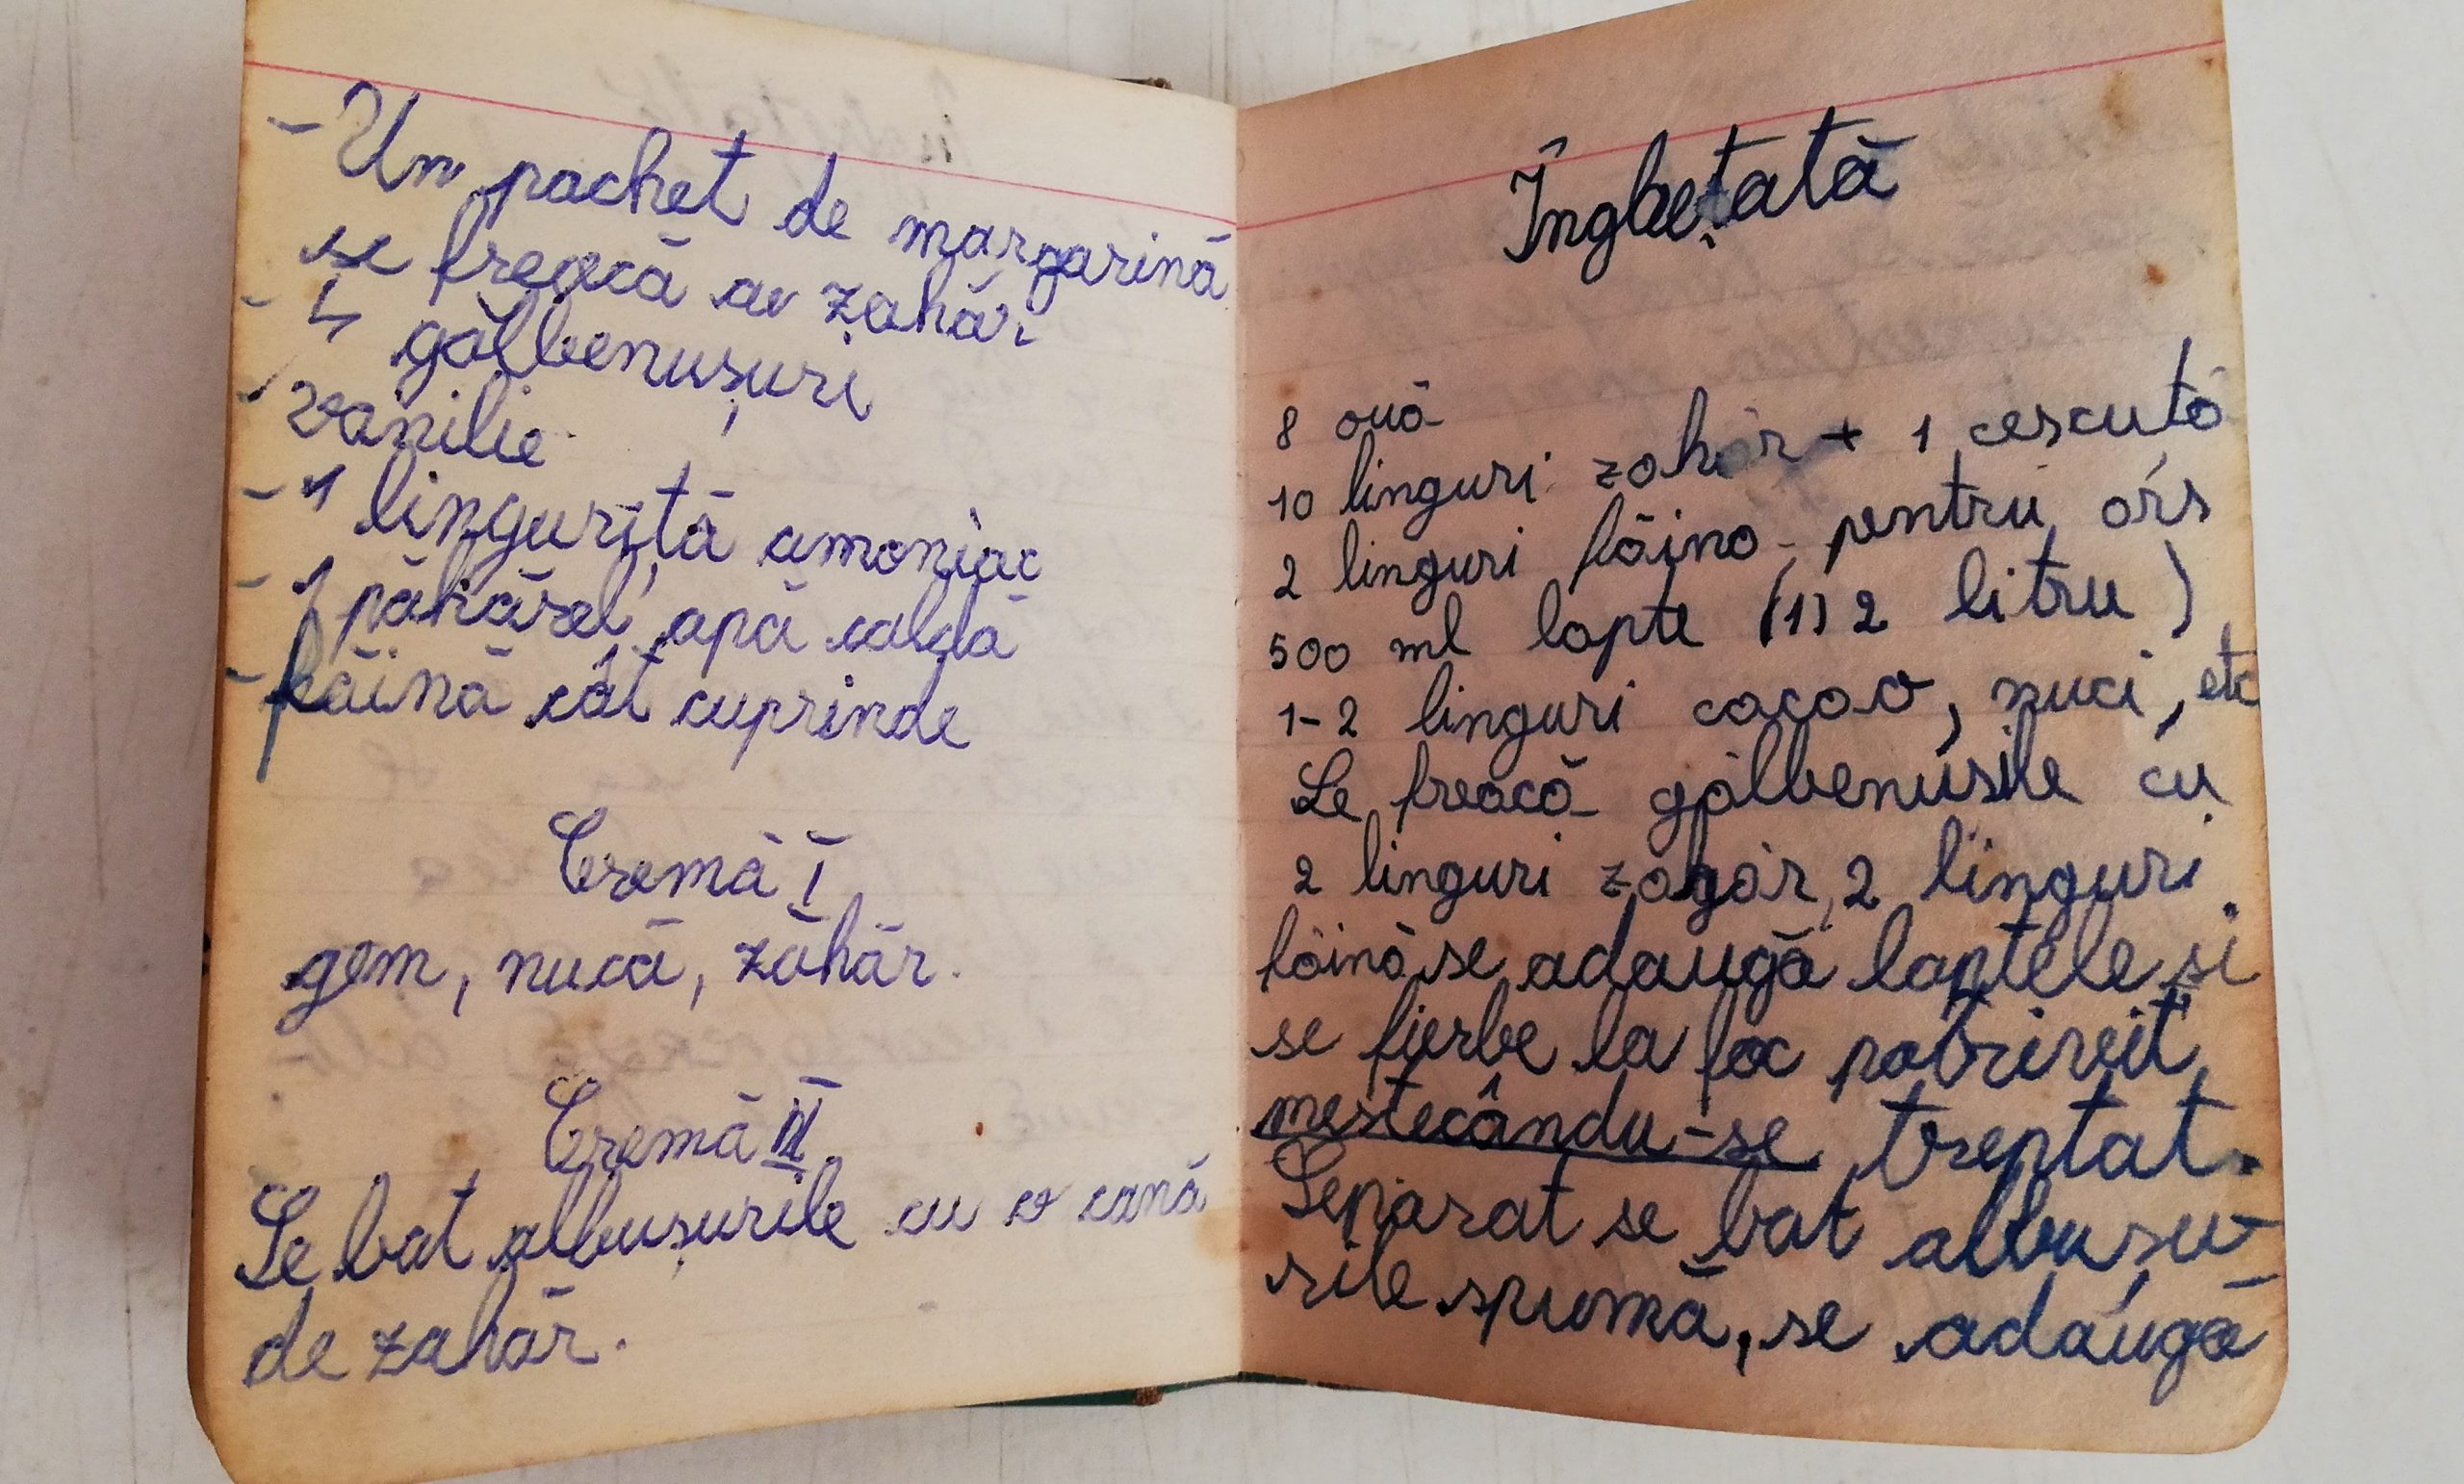 - Un pachet de margarină
se freacă cu zahăr
- 4 gălbenușuri
- vanilie
- 1 linguriță amoniac
- 1 păhărel apă caldă
- făină cât cuprinde
Cremă I
gem, nucă, zăhăr.
Cremă II
Se bat albușurile cu o cană
de zahăr.
Înghețată
8 ouă
10 linguri zahăr + 1 cescuță
2 linguri făină pentru ars
500 ml lapte (1) 2 litru)
1-2 linguri cacao, nuci, etc
Se freacă gălbenusile cu
2 linguri zahăr, 2 linguri
făină, se adaugă laptele și
se fierbe la foc potrivit
mestecându-se treptat.
Separat se bat albusu-
rile spumă, se adaugă